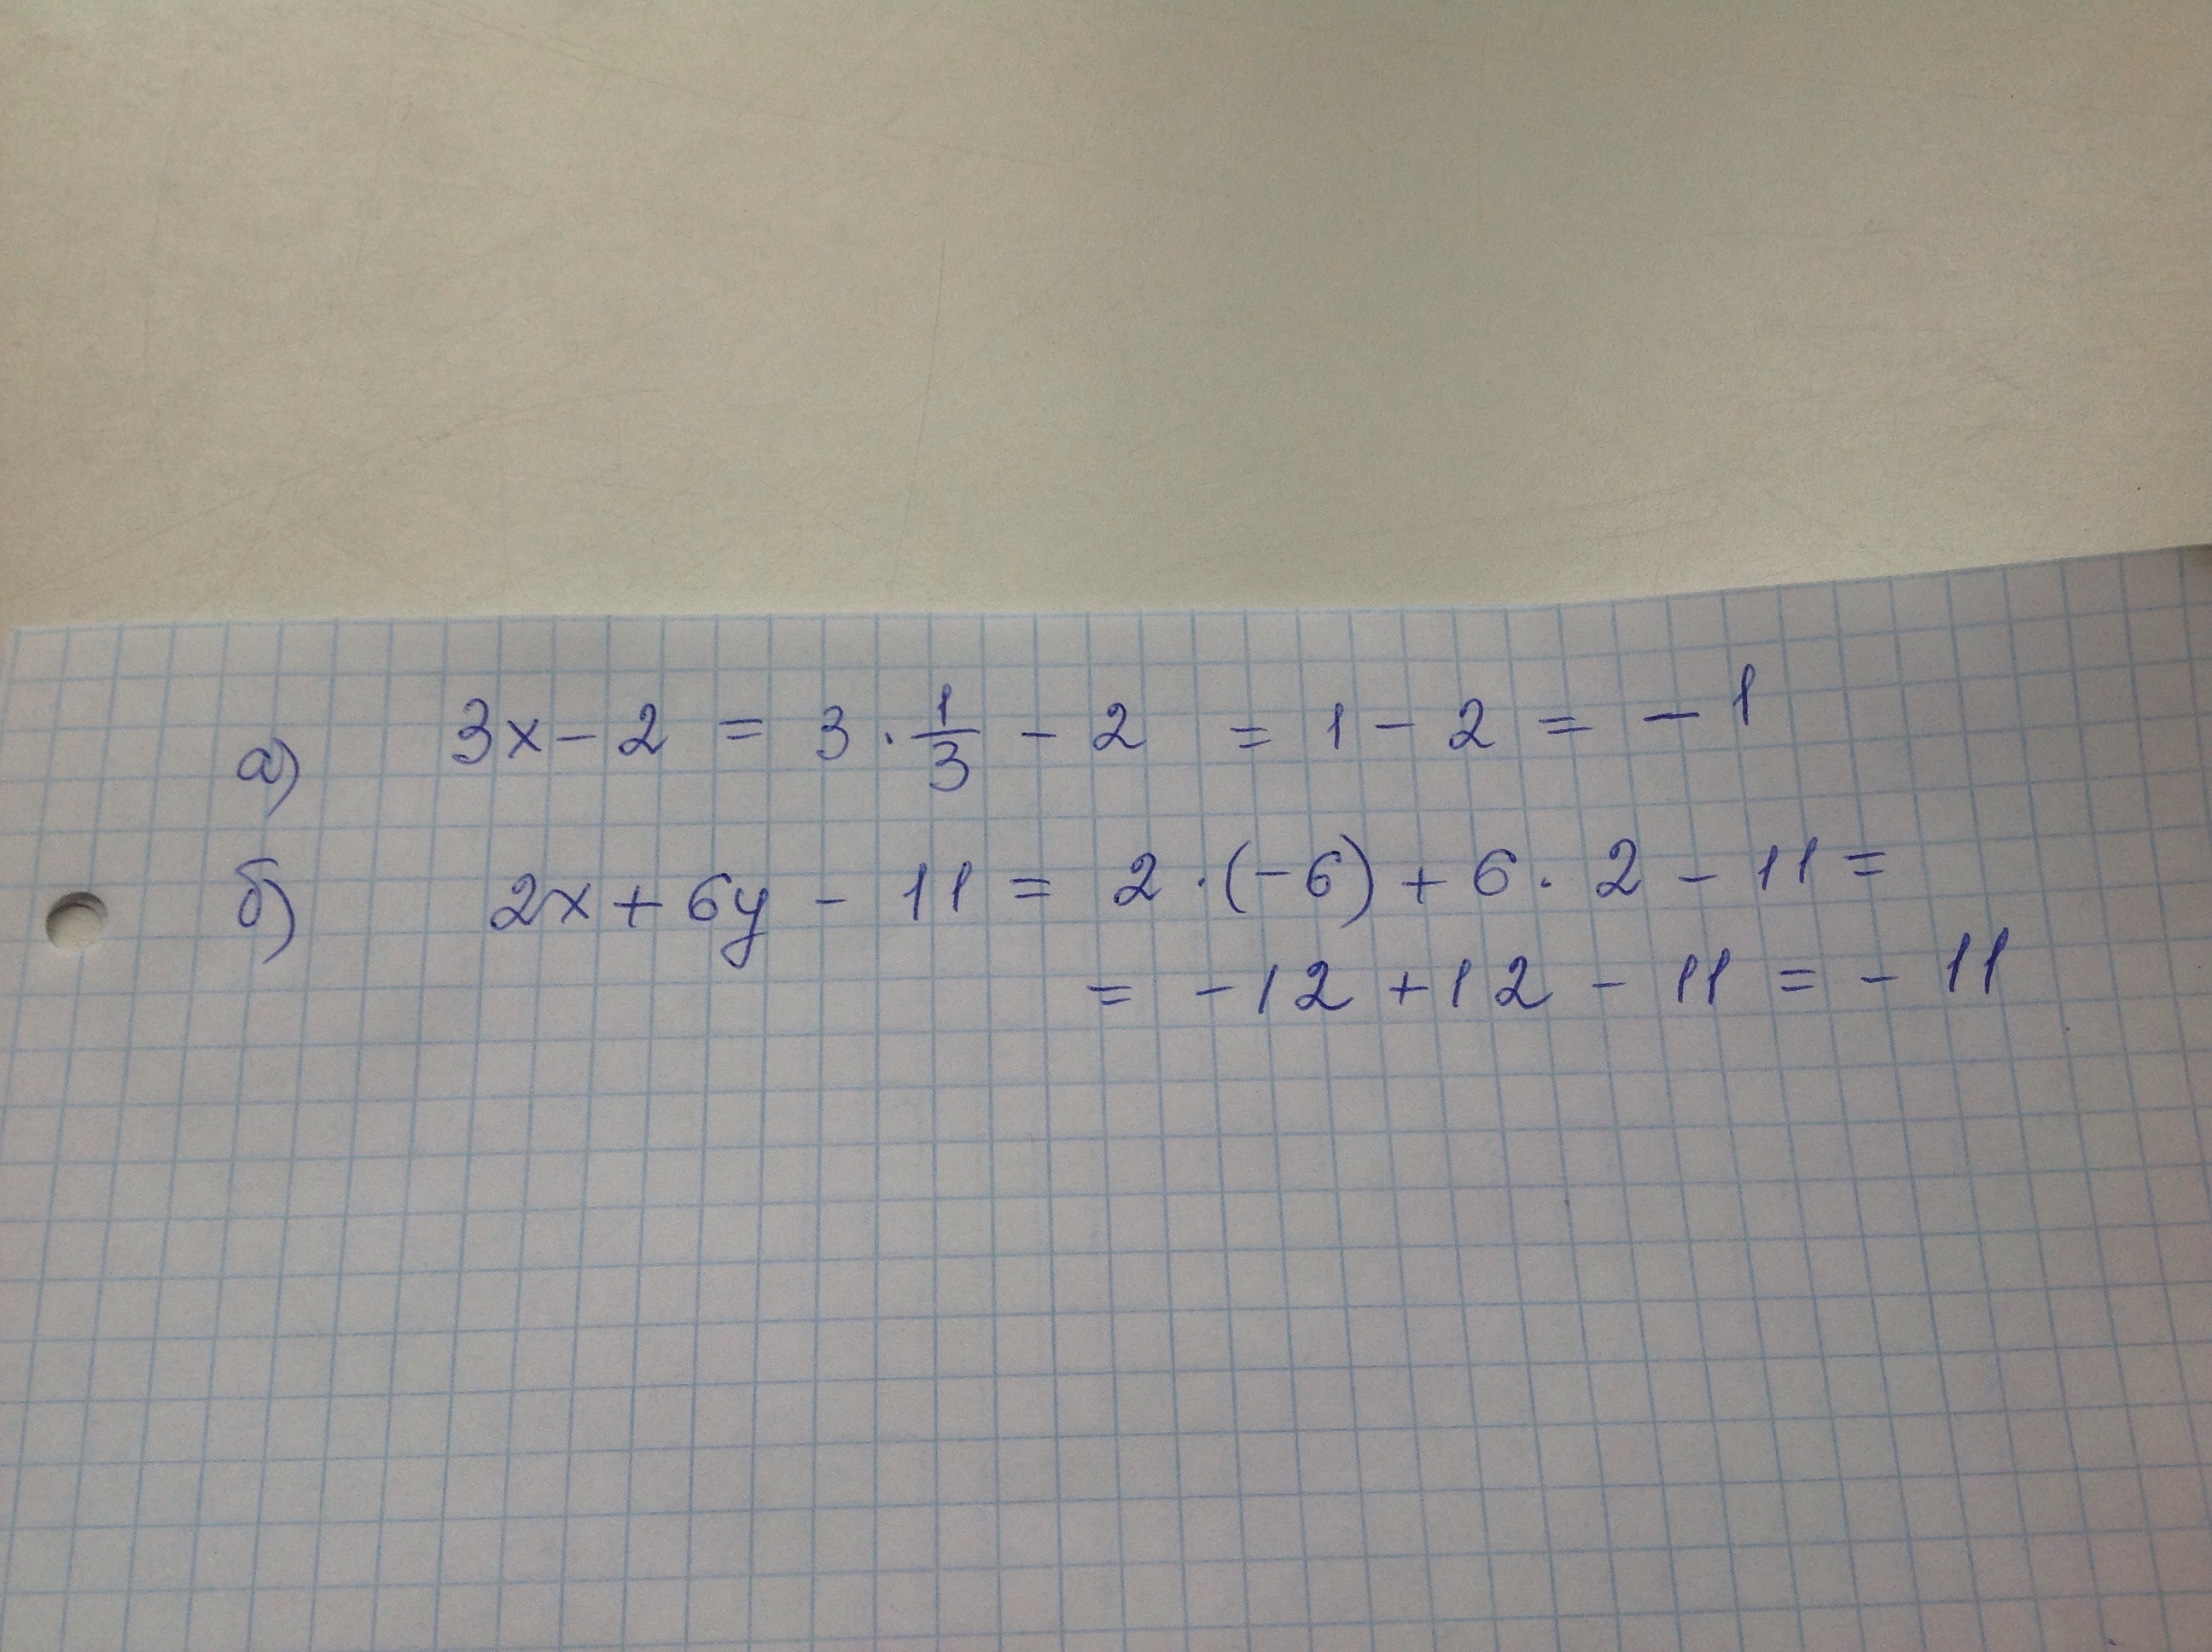 а) 3x - 2 = 3 · 1/3 - 2 = 1 - 2 = - 1
б) 2x + 6y - 11 = 2 · (-6) + 6 · 2 - 11 =
= -12 + 12 - 11 = - 11